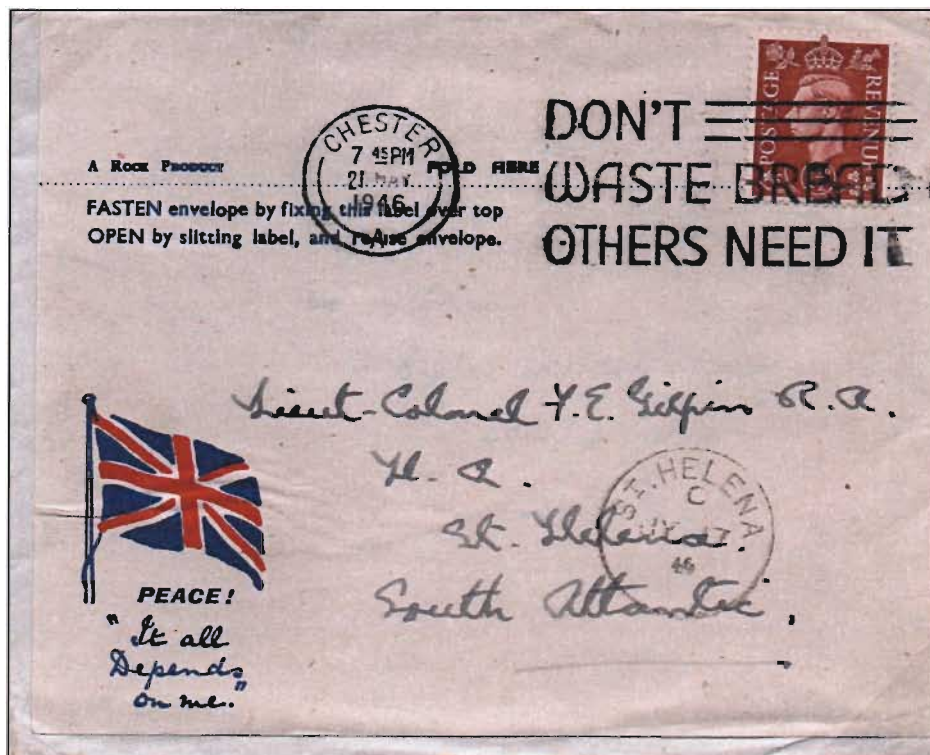 POSTAGE REVENUE
CHESTER
7 45 PM
21 MAY
1946
DON'T
WASTE BREAD
OTHERS NEED IT
A ROCK PRODUCT FOLD HERE
FASTEN envelope by fixing this label over top
OPEN by slitting label, and re-use envelope.
Lieut-Colonel Y.E. Gilpin R.A.
H. Q.
St. Helena.
South Atlantic,
ST. HELENA
C
JY 17
46
PEACE!
"It all
Depends
on me."